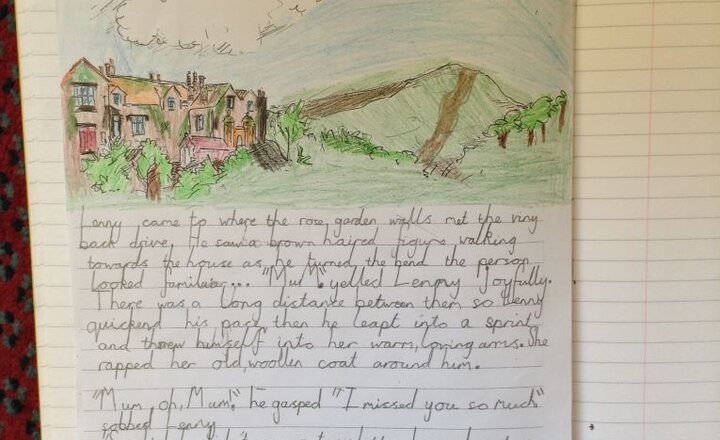 Lenny came to where the rose garden walls met the viny
back drive, He saw a brown haired figure walking
towards the house as he turned the bend the person
looked familiar... "Mum". yelled Lenny Joyfully.
There was a long distance between them so Lenny
quickend his pace, then he leapt into a sprint
and threw himself into her warm, loving arms. She
rapped her old, woollen coat around him.
"Mum, oh, Mum". he gasped "I missed you so much"
sobbed Lenny